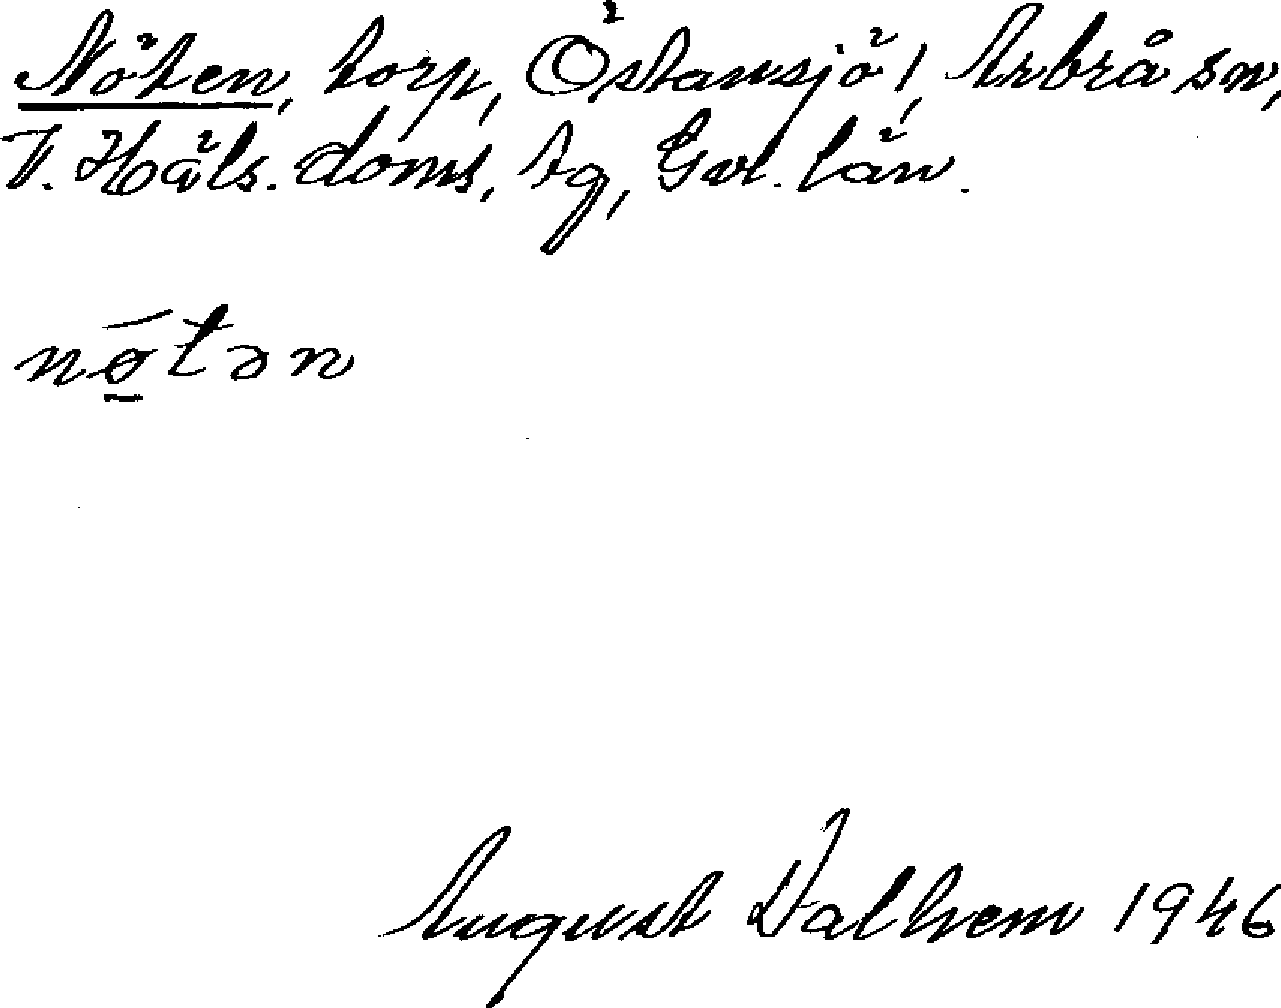 Nöten, torp, Östansjö!, Arbrå sn,
V. Häls. doms. tg, Gvl. län.
nǿ̱tən
August Dalhem 1946